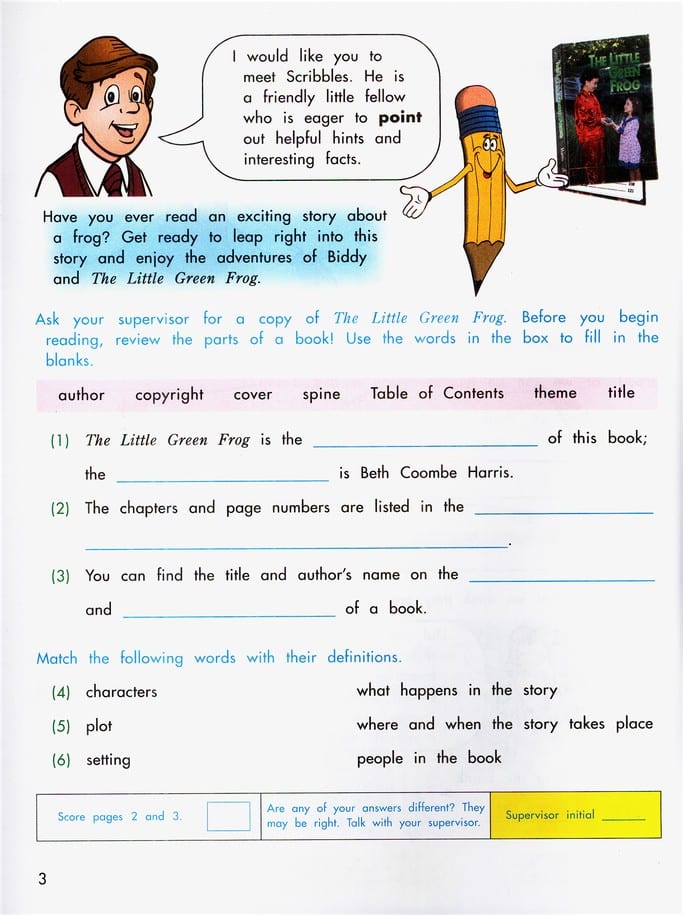 I would like you to
meet Scribbles. He is
a friendly little fellow
who is eager to point
out helpful hints and
interesting facts.
THE LITTLE
GREEN
FROG
Have you ever read an exciting story about
a frog? Get ready to leap right into this
story and enjoy the adventures of Biddy
and The Little Green Frog.
Ask your supervisor for a copy of The Little Green Frog. Before you begin
reading, review the parts of a book! Use the words in the box to fill in the
blanks.
author copyright cover spine Table of Contents theme title
(1) The Little Green Frog is the ____ of this book;
the ____ is Beth Coombe Harris.
(2) The chapters and page numbers are listed in the ____
____.
(3) You can find the title and author's name on the ____
and ____ of a book.
Match the following words with their definitions.
(4) characters what happens in the story
(5) plot where and when the story takes place
(6) setting people in the book
Score pages 2 and 3.
Are any of your answers different? They
may be right. Talk with your supervisor.
Supervisor initial ____
3